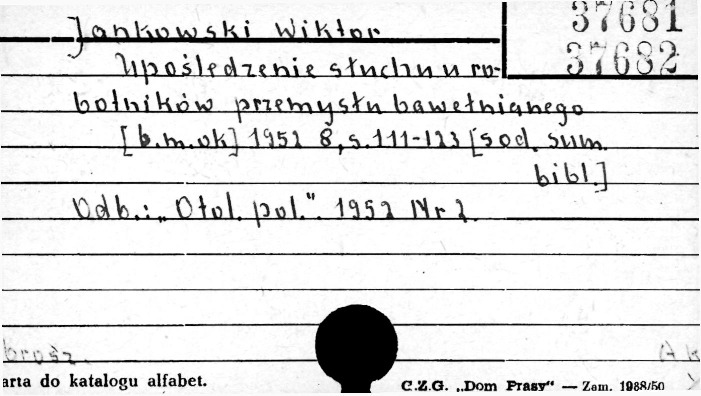 37681
Jankowski Wiktor
37682
Upośledzenie słuchu u ro-
botników przemysłu bawełnianego
[b.m.ok] 1952 8, s. 111-123 [sod. sum.
bibl.]
Odb.: „Otol. pol.". 1952 Nr 2.
brosz.
arta do katalogu alfabet.
C.Z.G. „Dom Prasy“ — Zam. 1988/50